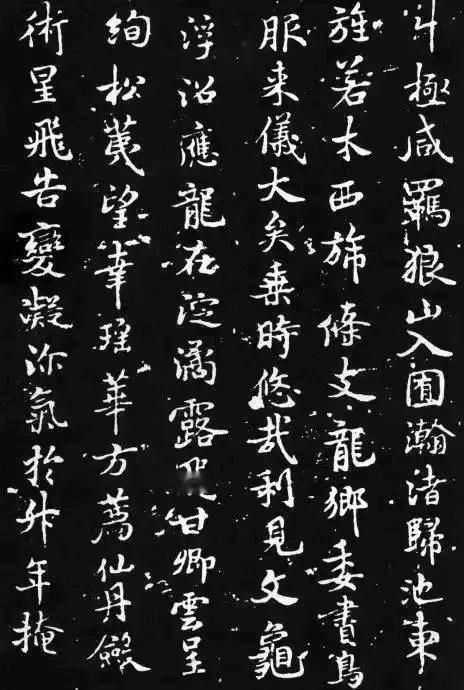 斗極咸羈狼山入囿瀚渚歸池東
旌若木西旆條支龍鄉委書鳥
服来儀大矣乘時悠哉利見文龜
浮沼應龍在淀潏露飛甘卿雲呈
絢松蓂望幸瑤華方薦仙丹
術星飛告變凝沴氣於升年掩